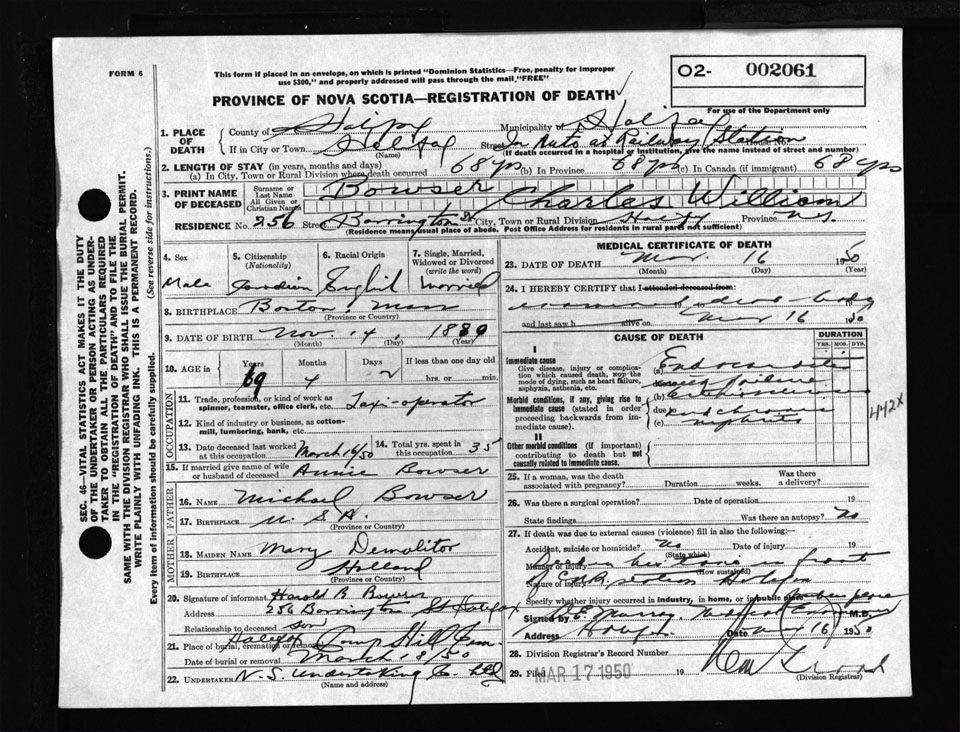 FORM 6
This form if placed in an envelope, on which is printed "Dominion Statistics—Free, penalty for improper
use $300," and properly addressed will pass through the mail, "FREE"
O2- 002061
PROVINCE OF NOVA SCOTIA—REGISTRATION OF DEATH
For use of the Department only
1. PLACE OF DEATH
County of Municipality of Halifax
If in City or Town Halifax Street In Auto at Railway Station House No.
(Name) (If death occurred in a hospital or institution, give the name instead of street and number)
2. LENGTH OF STAY (in years, months and days)
(a) In City, Town or Rural Division where death occurred 68 yrs (b) In Province 68 yrs (c) In Canada (if immigrant) 68 yrs
3. PRINT NAME OF DECEASED
Surname or Last Name Bowser
All Given or Christian Names Charles William
RESIDENCE No. 256 Street Barrington St City, Town or Rural Division Hfx Province NS
(Residence means usual place of abode. Post Office Address for residents in rural parts not sufficient)
4. Sex Male
5. Citizenship (Nationality) Canadian
6. Racial Origin English
7. Single, Married, Widowed or Divorced (write the word) married
8. BIRTHPLACE Boston, Mass
(Province or Country)
9. DATE OF BIRTH Nov. 14, 1880
(Month) (Day) (Year)
10. AGE in Years 69 Months 4 Days 2 If less than one day old hrs. or min.
OCCUPATION
11. Trade, profession, or kind of work as
spinner, teamster, office clerk, etc. Taxi-operator
12. Kind of industry or business, as cotton-
mill, lumbering, bank, etc.
13. Date deceased last worked at this occupation March 16/50
14. Total yrs. spent in this occupation 35
15. If married give name of wife or husband of deceased Annie Bowser
FATHER
16. NAME Michael Bowser
17. BIRTHPLACE U. S. A.
(Province or Country)
MOTHER
18. MAIDEN NAME Mary Demolitor
19. BIRTHPLACE Holland
(Province or Country)
20. Signature of informant Harold B Bowser
Address 256 Barrington St Halifax
Relationship to deceased son
21. Place of burial, cremation or removal Halifax Camp Hill Cem
Date of burial or removal March 18/50
22. UNDERTAKER N. S. Undertaking Co. Ltd
(Name and address)
MEDICAL CERTIFICATE OF DEATH
23. DATE OF DEATH Mar. 16 1950
(Month) (Day) (Year)
24. I HEREBY CERTIFY that I attended deceased from:
dead body 19
and last saw h alive on Mar 16 1950
CAUSE OF DEATH
DURATION
YRS. MOS. DYS.
I
Immediate cause
Give disease, injury or complica-
tion which caused death, not the
mode of dying, such as heart failure,
asphyxia, asthenia, etc.
(a)
failure
Morbid conditions, if any, giving rise to
immediate cause (stated in order
proceeding backwards from im-
mediate cause).
(b)
due
and chronic
(c) nephritis
442X
II
Other morbid conditions (if important)
contributing to death but not
causally related to immediate cause.
25. If a woman, was the death
associated with pregnancy? Duration weeks. Was there a delivery?
26. Was there a surgical operation? Date of operation 19
State findings Was there an autopsy? No
27. If death was due to external causes (violence) fill in also the following:
Accident, suicide or homicide? No Date of injury 19
(State which)
Manner of injury in front
(How sustained)
Nature of injury CNR station Halifax
Specify whether injury occurred in industry, in home, or in public place
Signed by Murray, Medical Examiner M.D.
Address Date Mar 16 1950
28. Division Registrar's Record Number
29. Filed MAR 17 1950 19
(Division Registrar)
SEC. 46—VITAL STATISTICS ACT MAKES IT THE DUTY
OF THE UNDERTAKER OR PERSON ACTING AS UNDER-
TAKER TO OBTAIN ALL THE PARTICULARS REQUIRED
IN THE "REGISTRATION OF DEATH" AND TO FILE THE
SAME WITH THE DIVISION REGISTRAR WHO SHALL ISSUE THE BURIAL PERMIT.
WRITE PLAINLY WITH UNFADING INK. THIS IS A PERMANENT RECORD.
Every item of information should be carefully supplied. (See reverse side for instructions.)